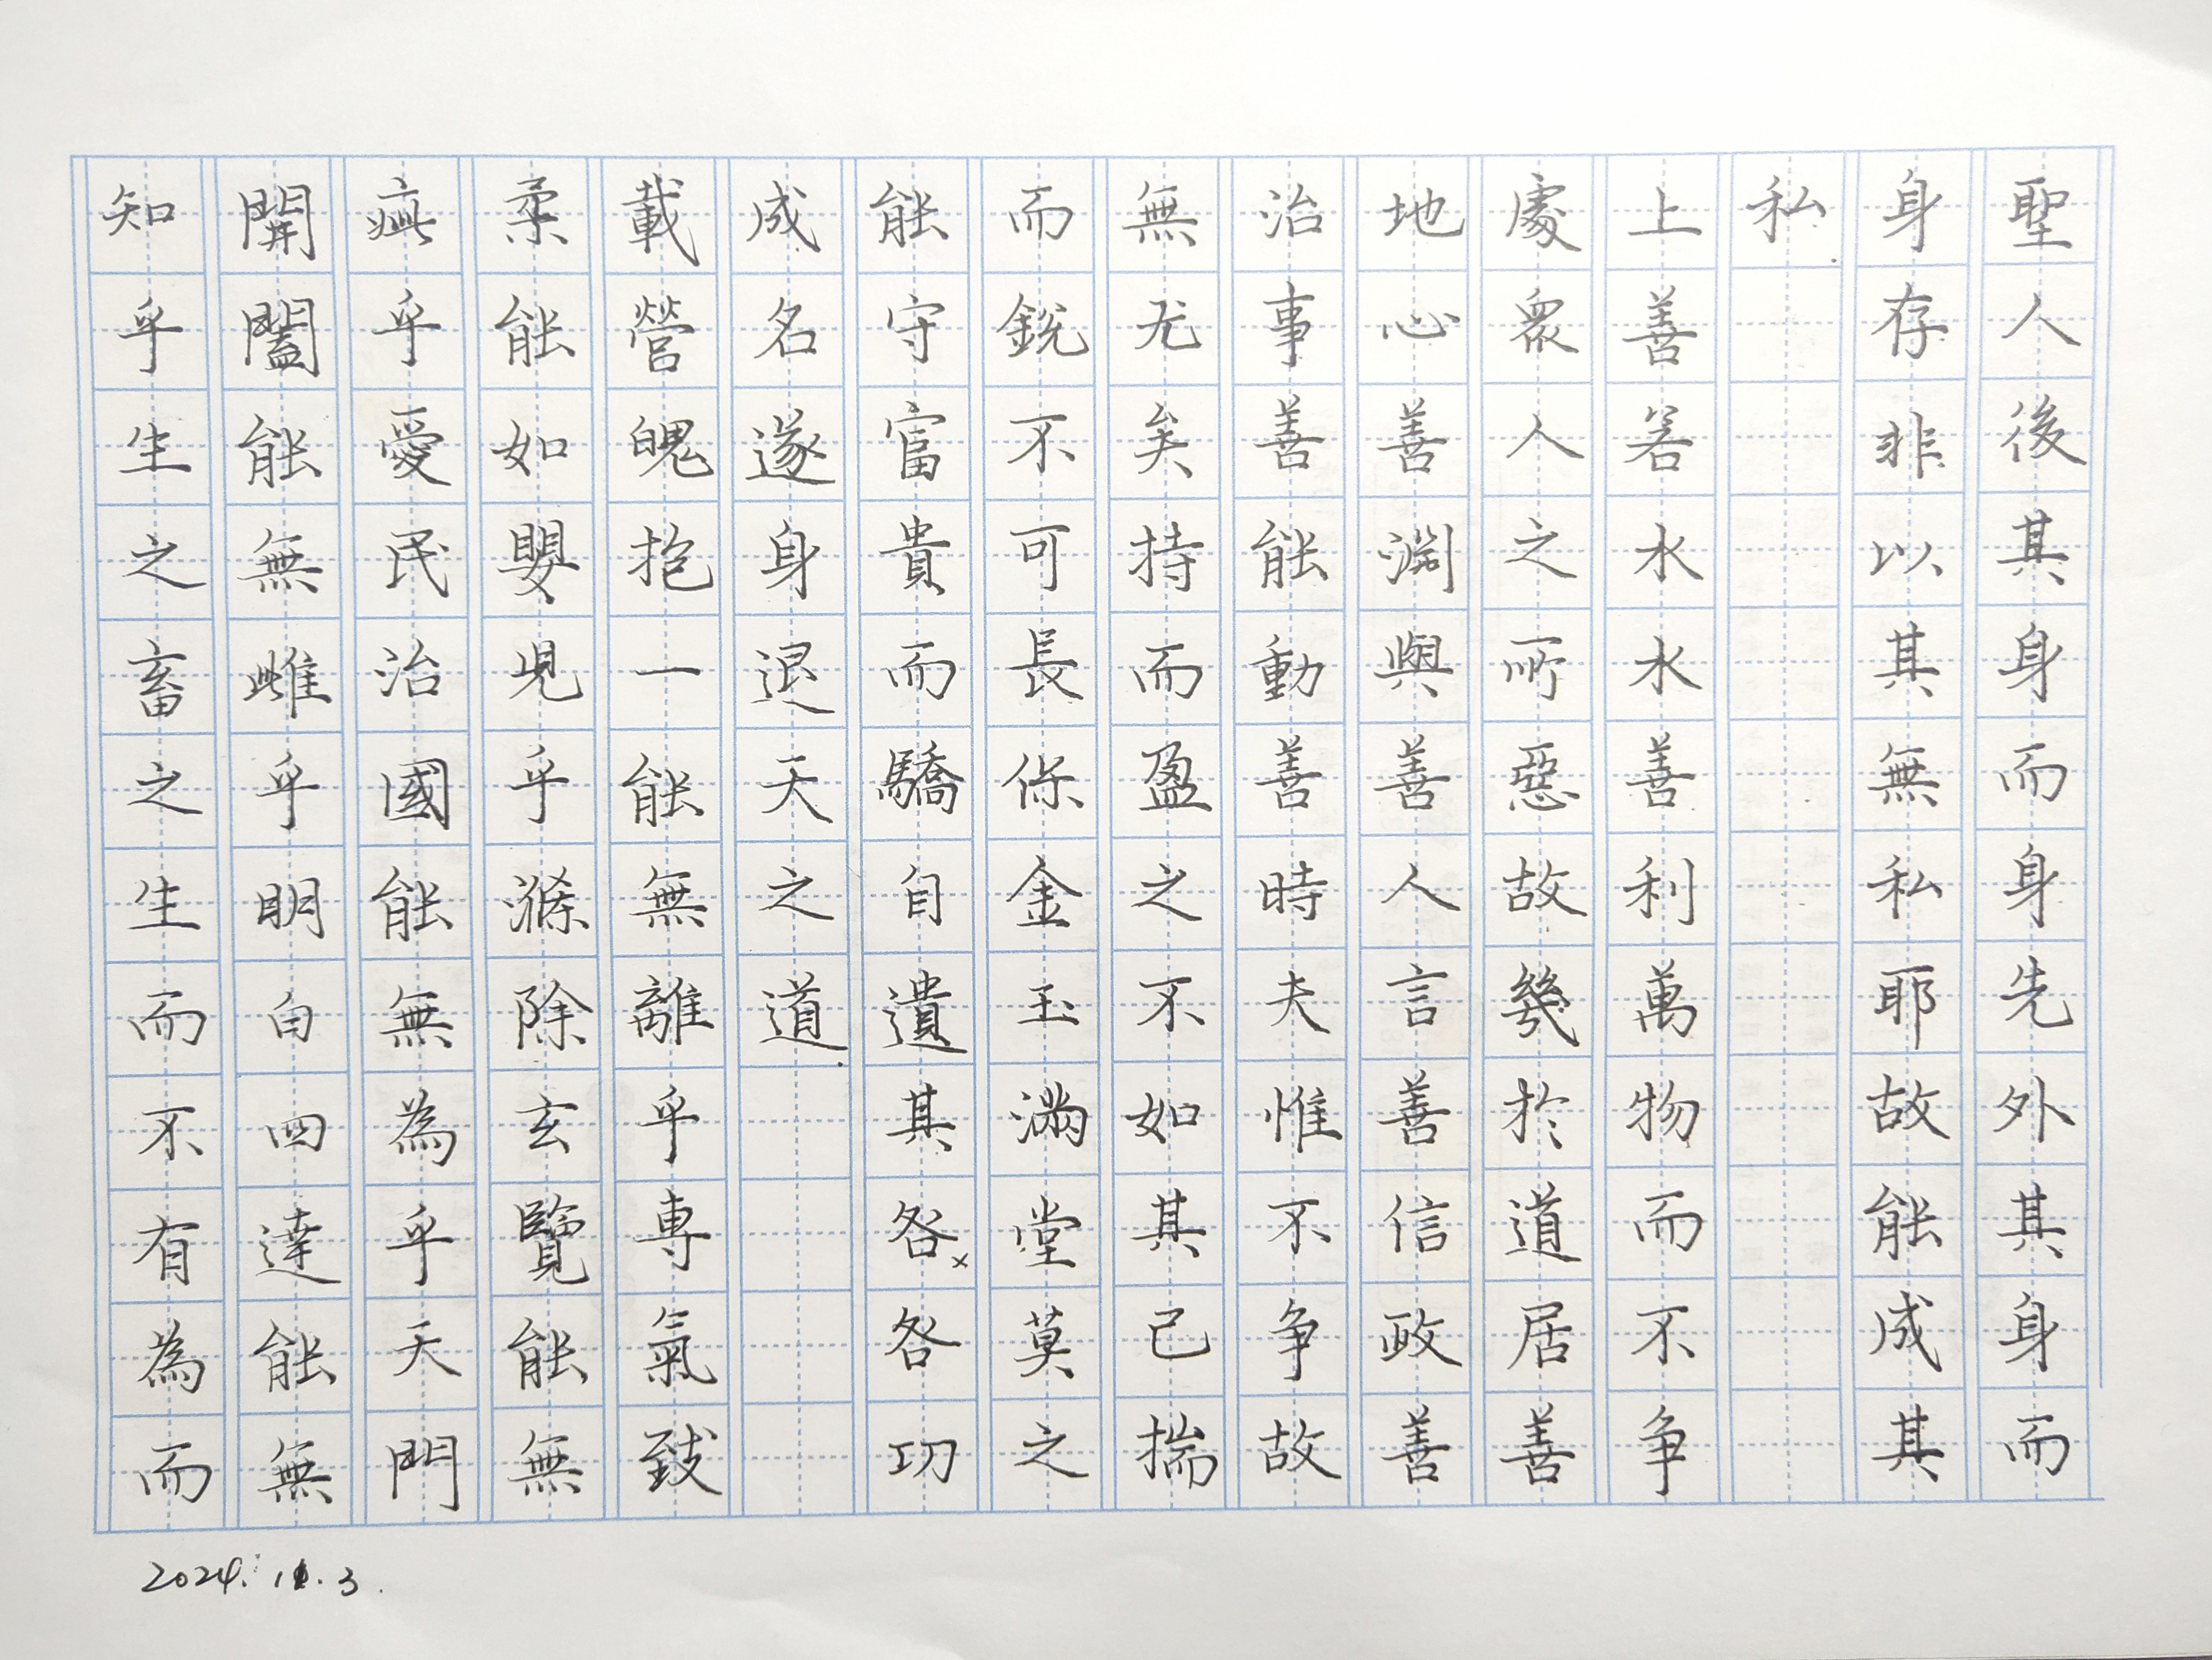 聖人後其身而身先外其身而
身存非以其無私耶故能成其
私
上善若水水善利萬物而不争
處衆人之所惡故幾於道居善
地心善淵與善人言善信政善
治事善能動善時夫惟不争故
無尤矣持而盈之不如其已揣
而鋭不可長保金玉滿堂莫之
能守富貴而驕自遺其咎咎功
成名遂身退天之道
載營魄抱一能無離乎専氣致
柔能如嬰児乎滌除玄覽能無
疵乎愛民治國能無為乎天門
開闔能無雌乎明白四達能無
知乎生之畜之生而不有為而
2024.11.3.